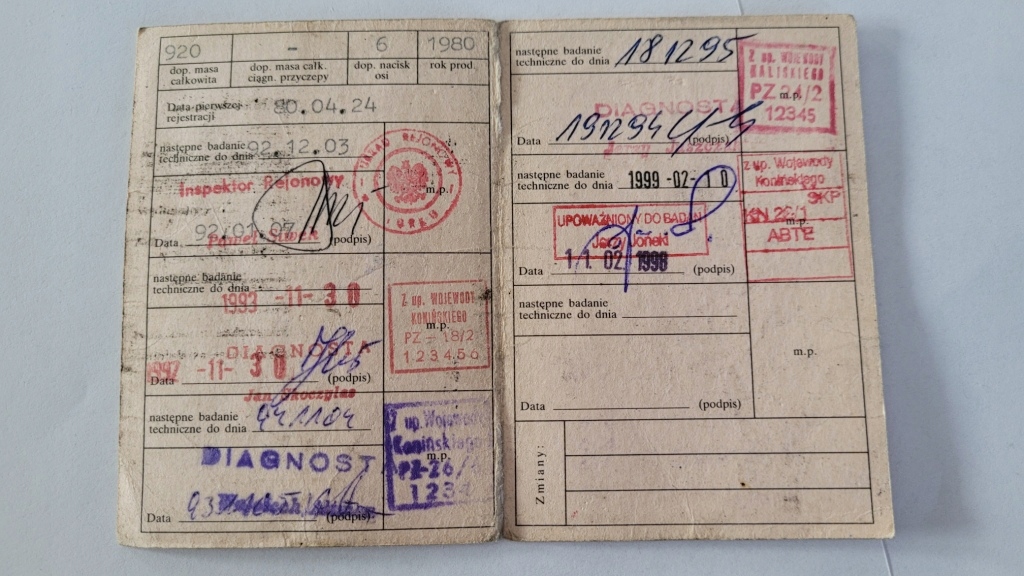 920
–
6
1980
dop. masa całkowita
dop. masa całk. ciągn. przyczepy
dop. nacisk osi
rok prod.
Data pierwszej rejestracji 80.04.24
następne badanie techniczne do dnia 92.12.03
Inspektor Rejonowy
m.p.
Data 92.01.07 (podpis)
następne badanie techniczne do dnia
1993 -11- 30
Z up. WOJEWODY
KONIŃSKIEGO
m.p.
PZ – 18/2
123456
DIAGNOSTA
Data 1992 -11- 30 (podpis)
Jan
następne badanie techniczne do dnia 941104
Z up. Wojewody
Konińskiego
m.p.
PZ-26/
1234
DIAGNOST
Data 93 (podpis)
następne badanie techniczne do dnia 181295
Z up. WOJEWODY
KALISKIEGO
PZ 24/2
m.p.
12345
DIAGNOSTA
Data 191294 (podpis)
Jerzy
następne badanie techniczne do dnia 1999 -02- 10
z up. Wojewody
Konińskiego
SKP
KN 26/1
m.p.
ABTE
UPOWAŻNIONY DO BADAŃ
Jerzy Joński
Data 11. 02 1998 (podpis)
następne badanie techniczne do dnia
m.p.
Data (podpis)
Zmiany: